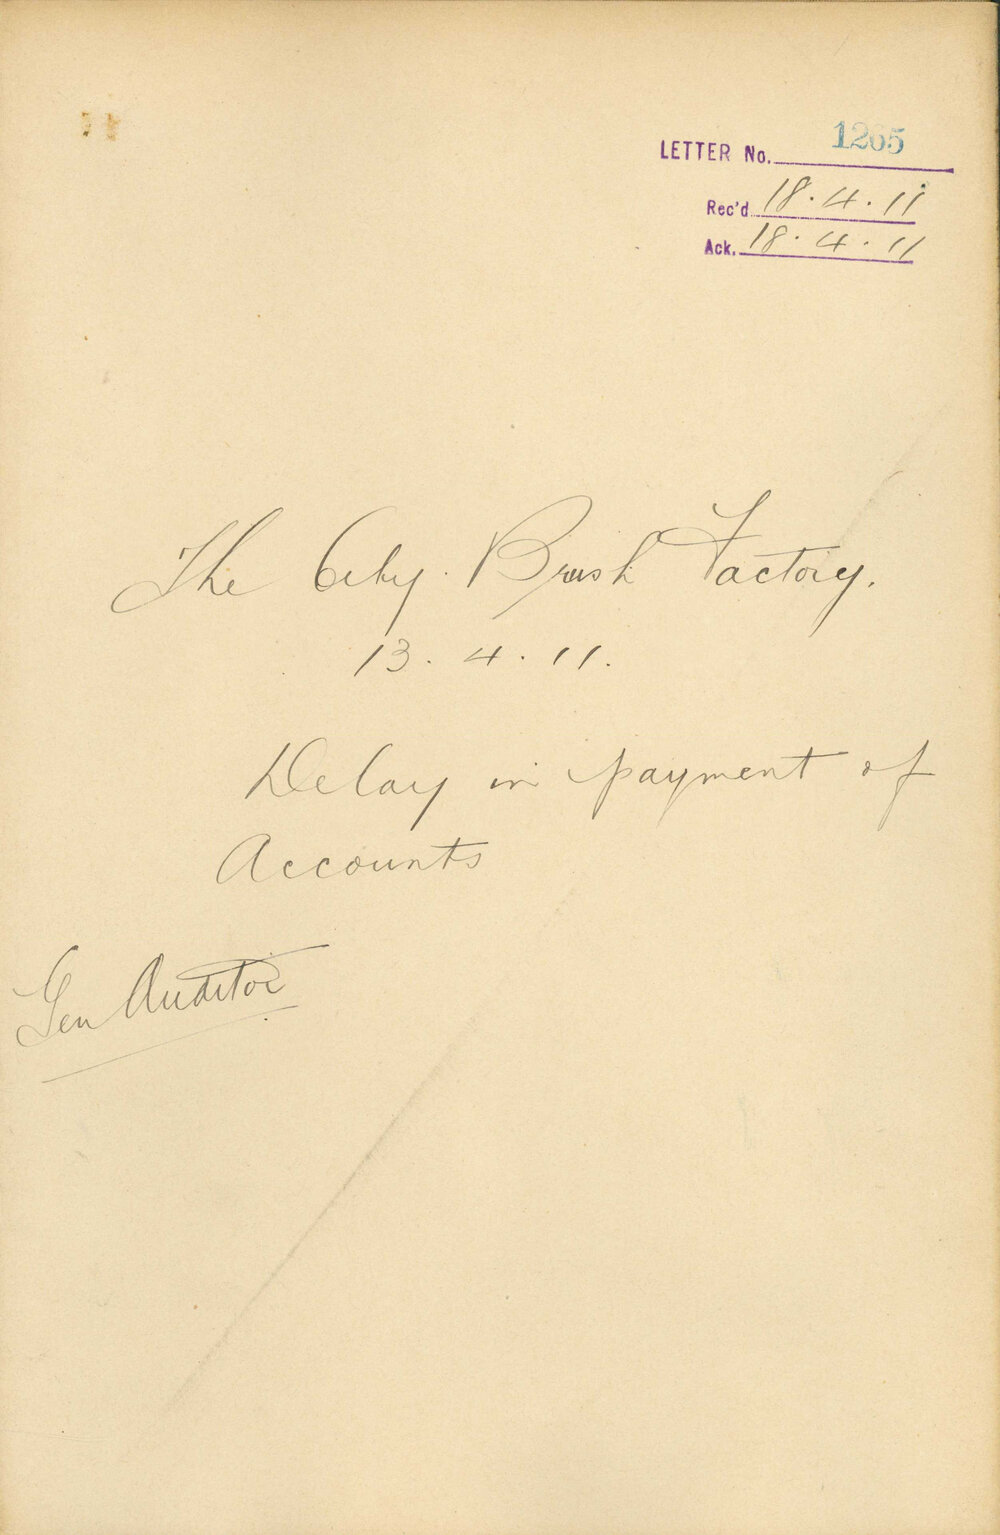 LETTER No. 1265
Rec'd 18.4.11
Ack. 18.4.11
The City Brush Factory.
13.4.11.
Delay in payment of
Accounts
Gen Auditor